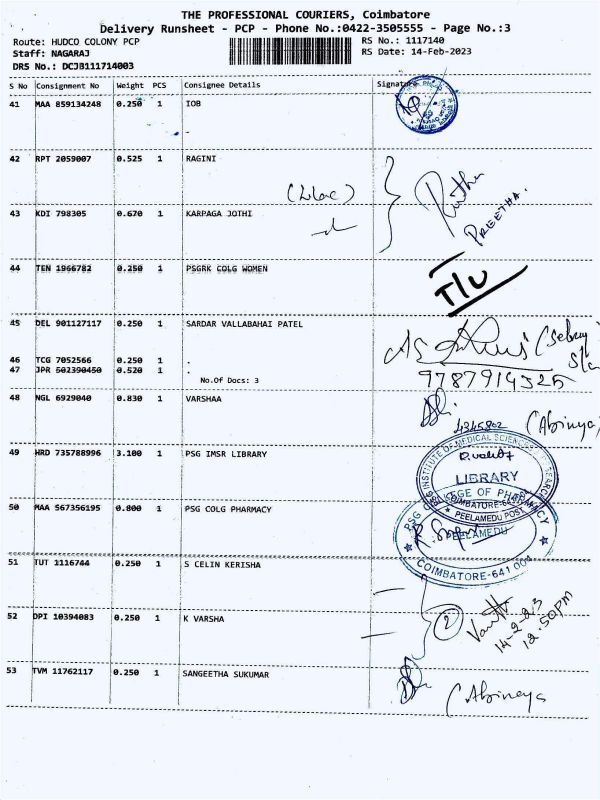 THE PROFESSIONAL COURIERS, Coimbatore
Delivery Runsheet - PCP - Phone No.:0422-3505555 - Page No.:3
Route: HUDCO COLONY PCP RS No.: 1117140
Staff: NAGARAJ RS Date: 14-Feb-2023
DRS No.: DCJB111714003
S No Consignment No Weight PCS Consignee Details Signature
41 MAA 859134248 0.250 1 IOB
42 RPT 2059007 0.525 1 RAGINI
(Lilac)
PREETHA.
43 KDI 798305 0.670 1 KARPAGA JOTHI
44 TEN 1966782 0.250 1 PSGRK COLG WOMEN
T/U
45 DEL 901127117 0.250 1 SARDAR VALLABAHAI PATEL
46 TCG 7052566 0.250 1 .
47 JPR 502390450 0.520 1 .
9787914325
No.Of Docs: 3
48 NGL 6929040 0.830 1 VARSHAA
(Abinaya)
49 HRD 735788996 3.100 1 PSG IMSR LIBRARY
LIBRARY
COIMBATORE-641 004
PEELAMEDU POST
50 MAA 567356195 0.800 1 PSG COLG PHARMACY
PSG COLLEGE OF PHARMACY
PEELAMEDU
COIMBATORE-641 004
51 TUT 1116744 0.250 1 S CELIN KERISHA
52 DPI 10394083 0.250 1 K VARSHA
2
14-2-23
12.50pm
53 TVM 11762117 0.250 1 SANGEETHA SUKUMAR
(Abinaya